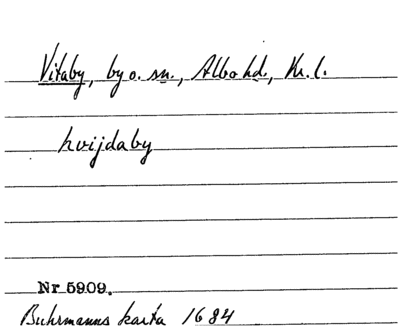 Vitaby, by o. sn., Albo hd., Kr. l.
hvijdaby
Nr 5909.
Buhrmanns karta 1684